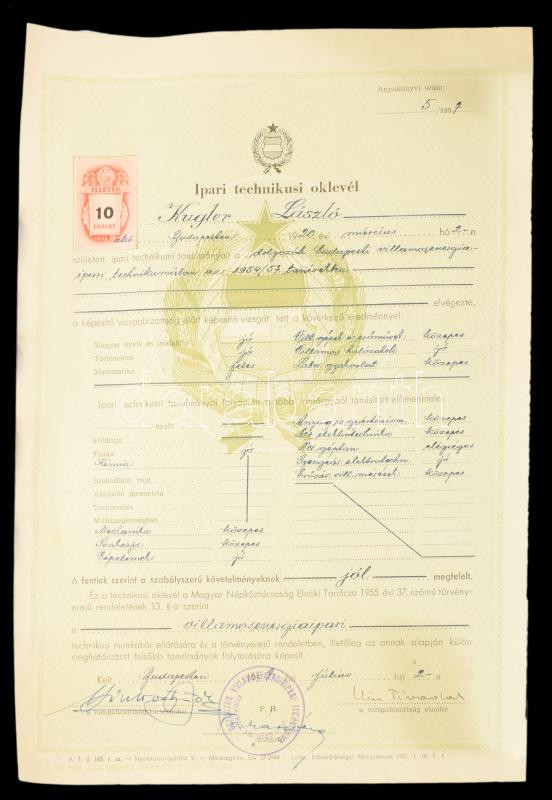 Anyakönyvi szám:
5 /1957
Ipari technikusi oklevél
ILLETÉK
10
FORINT
Kugler László
Budapesten 1920 évi március hó 2-n
született, ipari technikumi tanulmányait a dolgozók budapesti villamosenergia-
ipari technikumában az 1954/57. tanévekben
elvégezte,
a képesítő vizsgabizottság előtt képesítő vizsgát tett a következő eredménnyel:
Magyar nyelv és irodalom jó Vill. gépek és erőművek közepes
Történelem jó Villamos hálózatok jó
Matematika jeles Labor. gyakorlat közepes
Ipari technikumi tanulmányai folyamán a többi tantárgyból tanúsított előmenetele:
nyelv Anyag és gyártásism. közepes
Földrajz Ált. elektrotechnika közepes
Fizika jó Ált. géptan elégséges
Kémia Gyengeár. elektrotechn. jó
Szabadkézi rajz Erősár. vill. mérések közepes
Ábrázoló geometria
Testnevelés
Munkaegészségtan
Mechanika közepes
Szakrajz közepes
Gépelemek jó
A fentiek szerint a szabályszerű követelményeknek jól megfelelt.
Ez a technikusi oklevél a Magyar Népköztársaság Elnöki Tanácsa 1955. évi 37. számú törvény-
erejű rendeletének 13. §-a szerint
a villamosenergiaipari
technikusi munkakör ellátására és a törvényerejű rendeletben, illetőleg az annak alapján külön
meghatározott felsőbb tanulmányok folytatására képesít.
Kelt Budapesten 1957. július hó 2-n
P. H.
a vizsgabizottság elnöke.
A. T. Ü. 165. r. sz. — Nyomtatványellátó V.